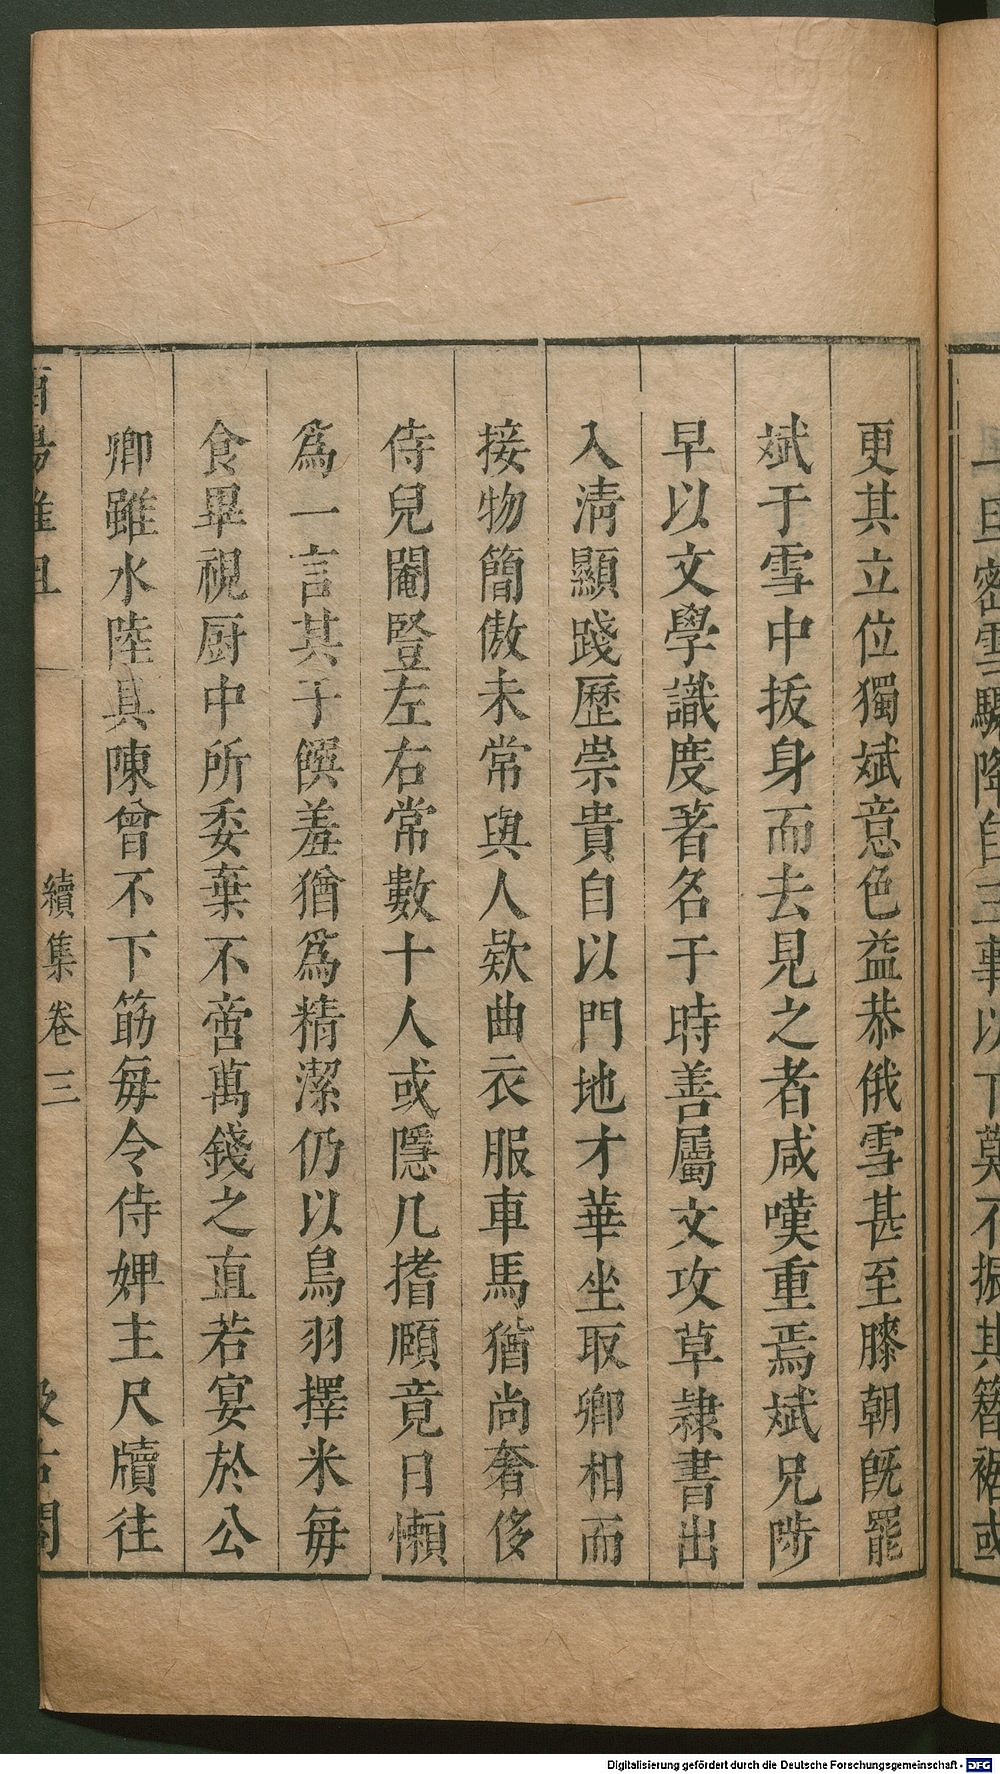 旦密雪驟降自三事以下莫不振其簪裾或
更其立位獨斌意色益恭俄雪甚至膝朝旣罷
斌于雪中拔身而去見之者咸嘆重焉斌兄陟
早以文學識度著名于時善屬文攻草隷書出
入淸顯踐歷崇貴自以門地才華坐取卿相而
接物簡傲未常與人欵曲衣服車馬猶尚奢侈
侍兒閹豎左右常數十人或隱几搘頤竟日懶
爲一言其于饌羞猶爲精潔仍以鳥羽擇米每
食畢視厨中所委棄不啻萬錢之直若宴於公
卿雖水陸具陳曾不下筯每令侍婢主尺牘往
酉陽雜俎 續集卷三 汲古閣
Digitalisierung gefördert durch die Deutsche Forschungsgemeinschaft - DFG